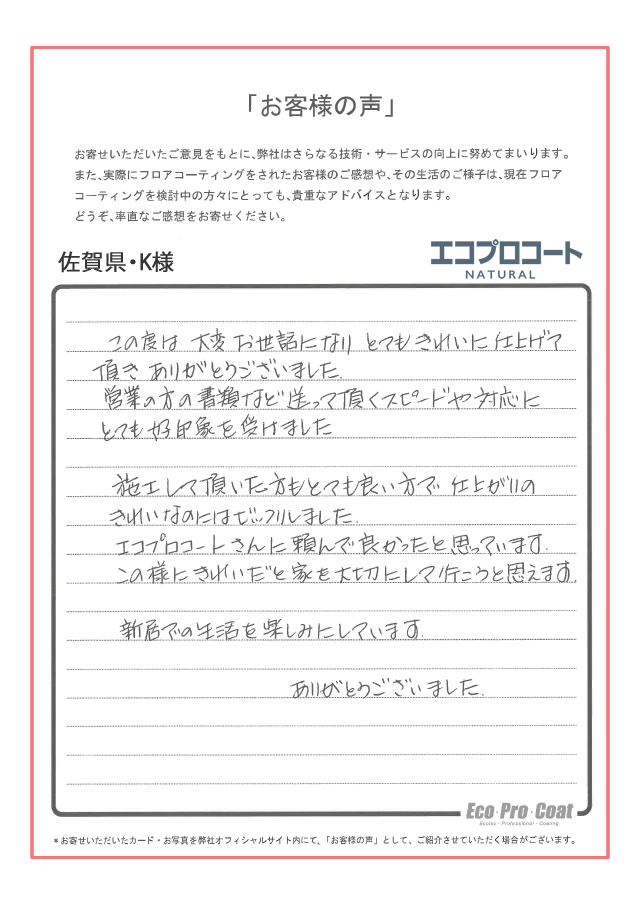 「お客様の声」
お寄せいただいたご意見をもとに、弊社はさらなる技術・サービスの向上に努めてまいります。
また、実際にフロアコーティングをされたお客様のご感想や、その生活のご様子は、現在フロア
コーティングを検討中の方々にとっても、貴重なアドバイスとなります。
どうぞ、率直なご感想をお寄せください。
佐賀県・K様
エコプロコート
NATURAL
この度は 大変お世話になり とてもきれいに仕上げて
頂き ありがとうございました.
営業の方の書類など送って頂くスピードや対応に
とても好印象を受けました
施工して頂いた方もとても良い方で 仕上がりの
きれいなのにはビックリしました.
エコプロコートさんに頼んで良かったと思っています.
この様にきれいだと家を大切にして行こうと思えます.
新居での生活を楽しみにしています.
ありがとうございました.
Eco・Pro・Coat
Ecotec - Professional - Coating
*お寄せいただいたカード・お写真を弊社オフィシャルサイト内にて、「お客様の声」として、ご紹介させていただく場合がございます。